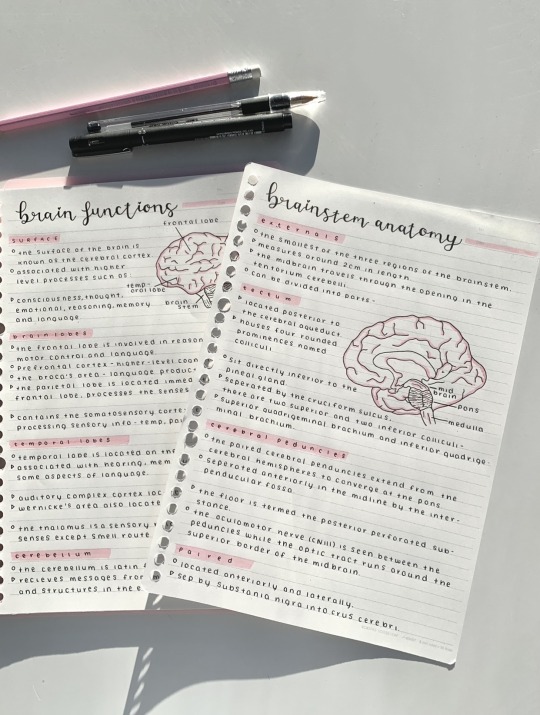 brain functions
frontal lobe
surface
the surface of the brain is
known as the cerebral cortex.
associated with higher
level processes such as:
consciousness, thought,
emotional, reasoning, memory
and language.
temp-
oral lobe
brain
stem
brain lobes
the frontal lobe is involved in reason
motor control and language.
Prefrontal cortex - higher-level cogn
the broca's area - language produc
the parietal lobe is located immed
frontal lobe. processes the senses
contains the somatosensory corte
processing sensory info - temp, pai
temporal lobes
temporal lobe is located on the
associated with hearing, mem
some aspects of language.
auditory complex cortex loc
wernicke's area also locate
the thalamus is a sensory
senses except smell route
cerebellum
the cerebellum is latin f
recieves messages from
and structures in the
brainstem anatomy
externals
the smallest of the three regions of the brainstem.
measures around 2cm in length.
the midbrain travels through the opening in the
tentorium cerebelli.
can be divided into parts -
tectum
located posterior to
the cerebral aqueduct
houses four rounded
prominences named
colliculi.
mid
brain
pons
medulla
sit directly inferior to the
pineal gland.
seperated by the cruciform sulcus.
there are two superior and two inferior colliculi-
superior quadrigeminal brachium and inferior quadrige-
minal brachium.
cerebral peduncies
the paired cerebral penduncies extend from the
cerebral hemispheres to converge at the pons.
seperated anteriorly in the midline by the inter-
penducular fossa.
the floor is termed the posterior perforated sub-
stance.
the oculamotor nerve (CNIII) is seen between the
peduncies while the optic tract runs around the
superior border of the midbrain.
paired
located anteriorly and laterally.
sep. by Substania nigra into crus cerebri